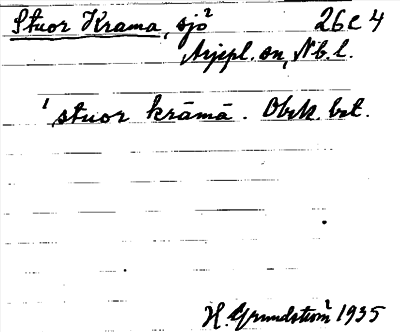 Stuor Krama, sjö 26C4
Arjepl. sn, Nb. l.
ˈstuor krāmā. Obek. bet.
H. Grundström 1935